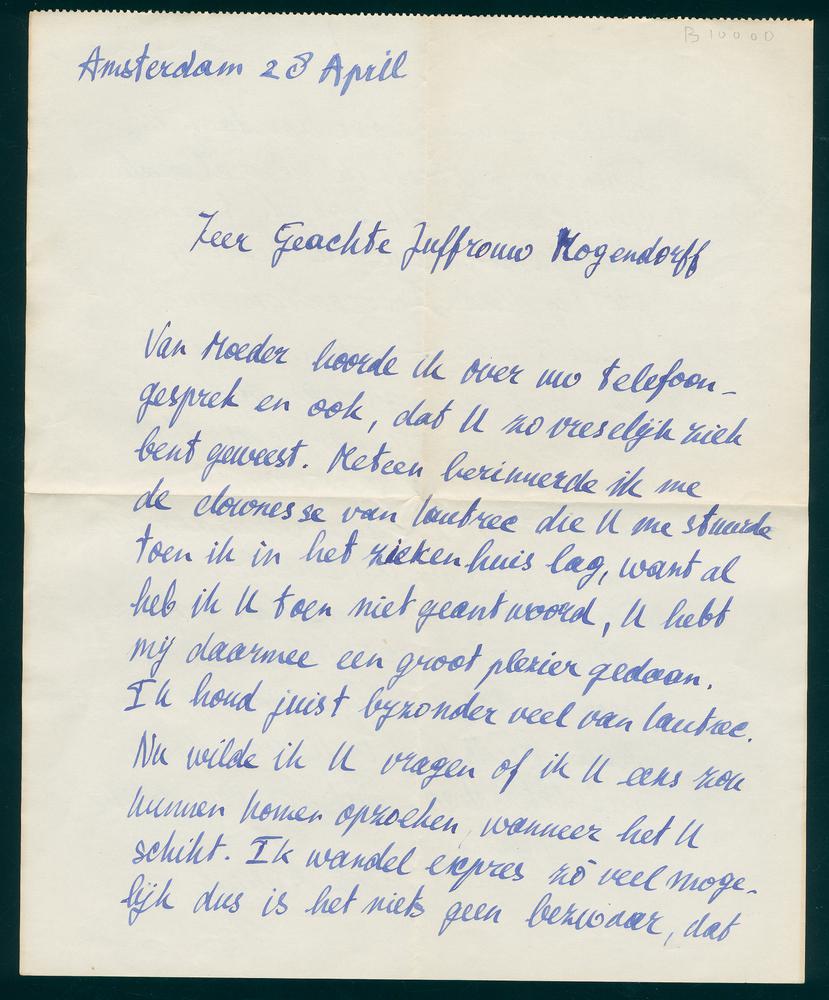 B 10000
Amsterdam 28 April
Zeer Geachte Juffrouw Hogendorff
Van Moeder hoorde ik over uw telefoon-
gesprek en ook, dat U zo vreselijk ziek
bent geweest. Meteen herinnerde ik me
de clownesse van Lautrec die U me stuurde
toen ik in het ziekenhuis lag, want al
heb ik U toen niet geantwoord, U hebt
mij daarmee een groot plezier gedaan.
Ik houd juist byzonder veel van Lautrec.
Nu wilde ik U vragen of ik U eens zou
kunnen komen opzoeken, wanneer het U
schikt. Ik wandel expres zó veel moge-
lijk dus is het niets geen bezwaar, dat